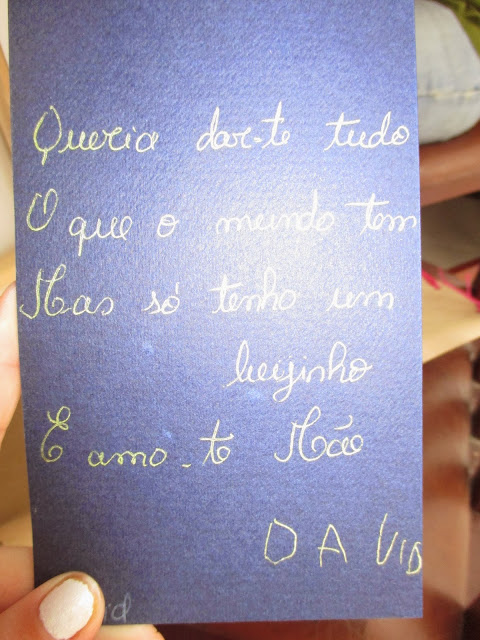 Queria dar-te tudo
O que o mundo tem
Mas só tenho um
beijinho
E amo-te Mãe
DAVID